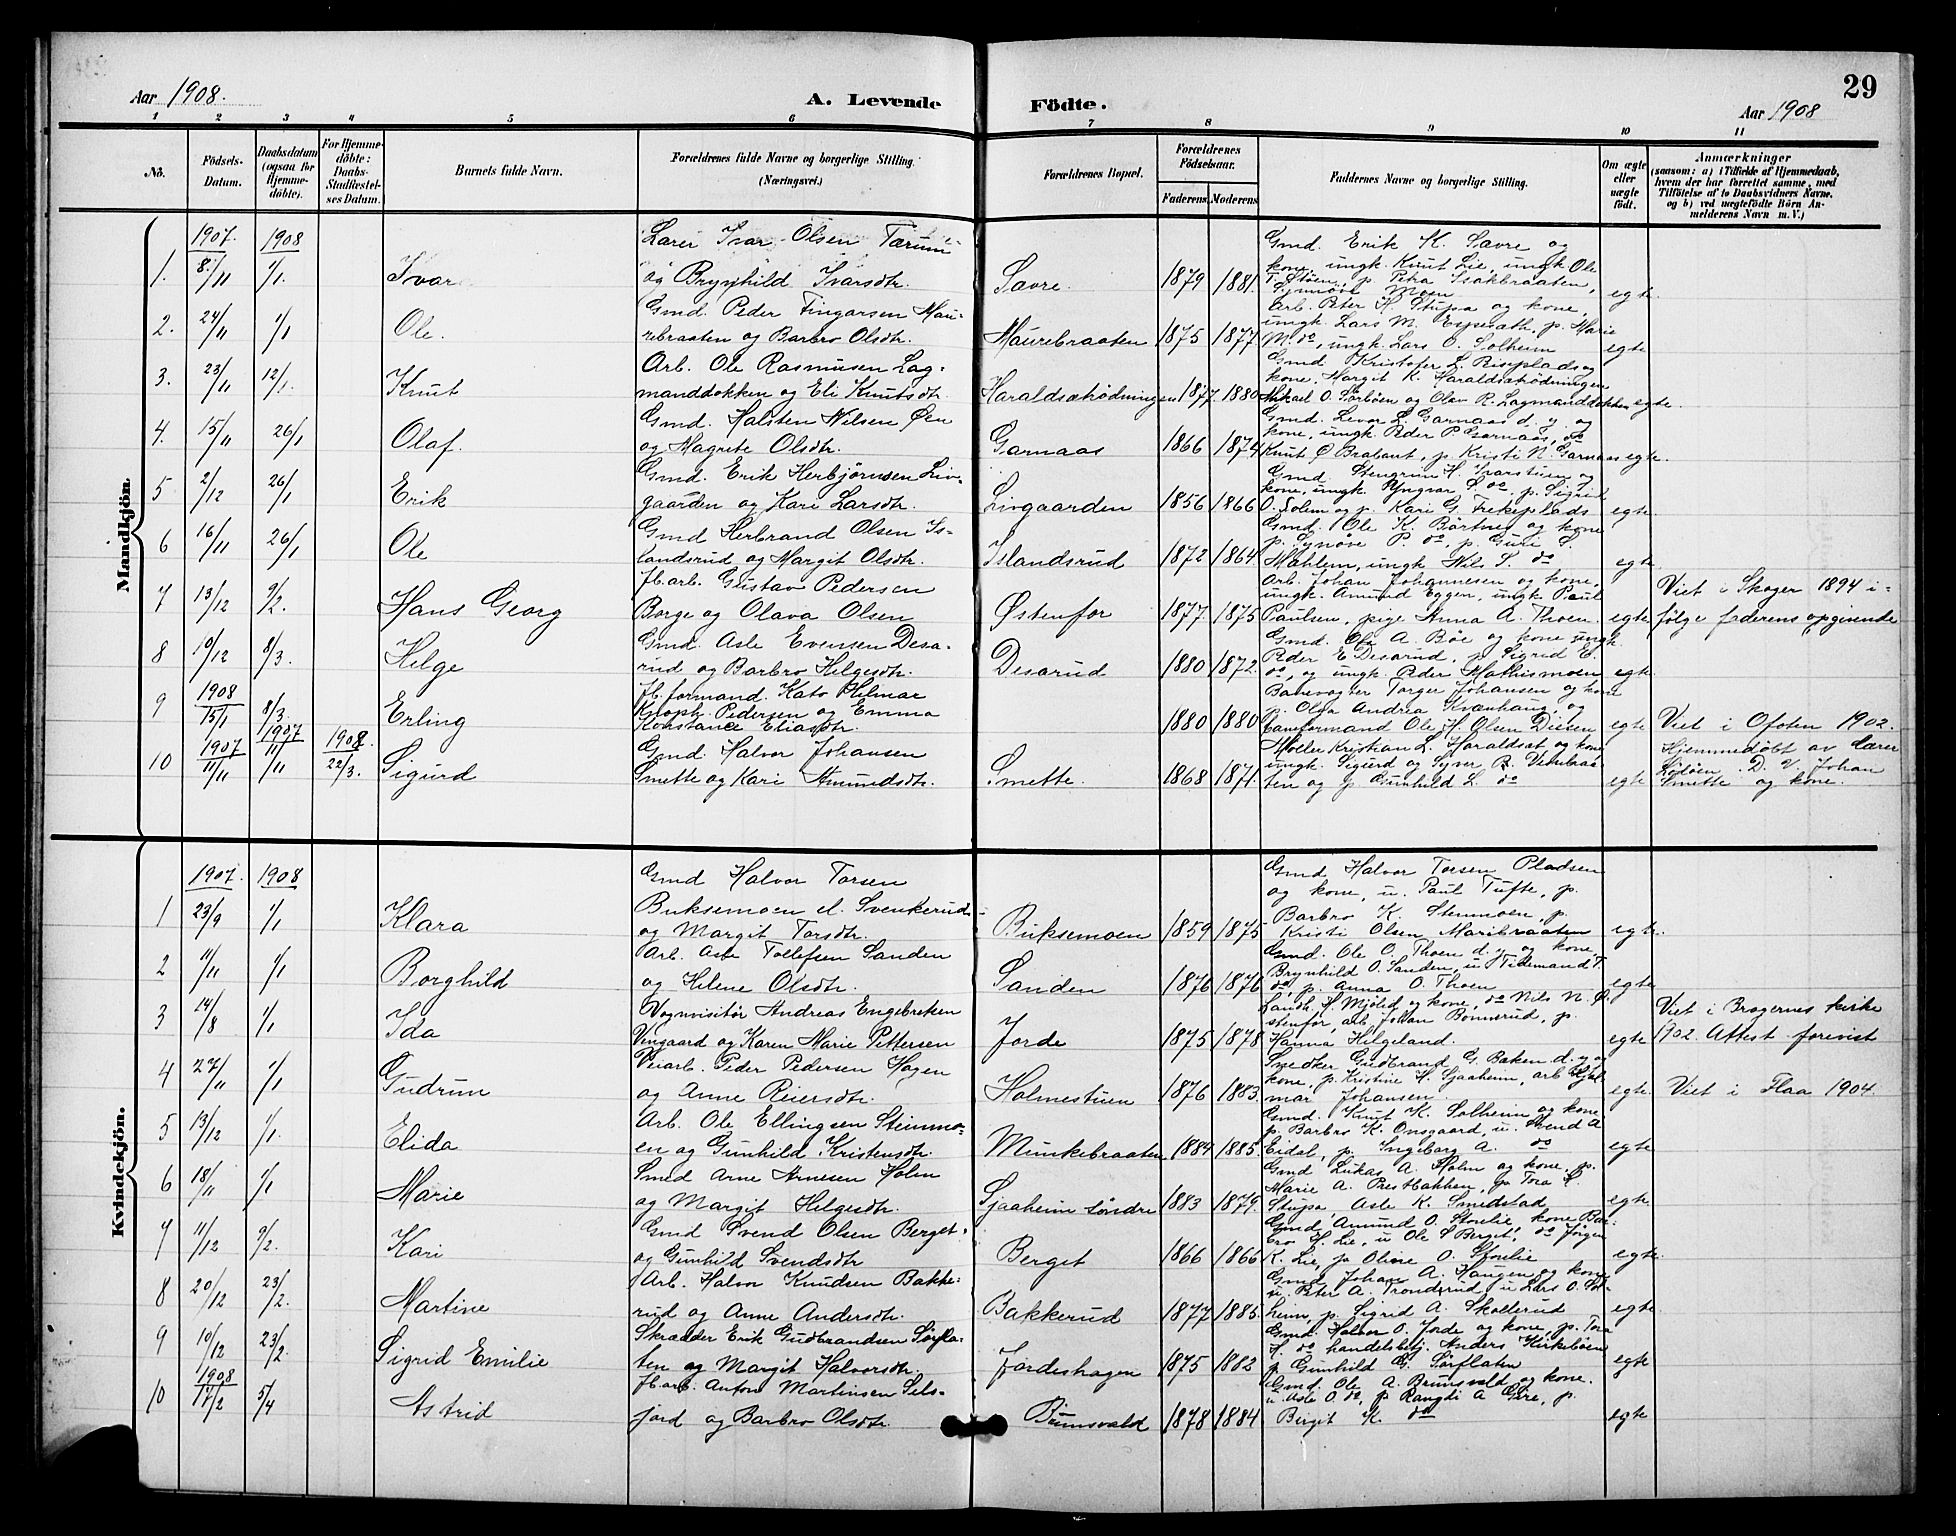 29
Aar 1908. A. Levende Födte. Aar 1908
1 2 3 4 5 6 7 8 9 10 11
No. Födsels-Datum. Daabsdatum (ogsaa for Hjemmedöbte). For Hjemmedöbte: Daabs-Stadfæstelses Datum. Barnets fulde Navn. Forældrenes fulde Navne og borgerlige Stilling. (Næringsvei.) Forældrenes Bopæl. Forældrenes Födselsaar. Faderens Moderens Faddernes Navne og borgerlige Stilling. Om ægte eller uægte födt. Anmærkninger (saasom: a) i Tilfælde af Hjemmedaab, hvem der har forrettet samme, med Tilföielse af to Daabsvidners Navne, og b) ved uægtefödte Börn Anmelderens Navn m. V.)
Mandkjön.
1907. 1908
1. 8/11 1/1. Ivar Lærer Ivar Olsen Tærum og Brynhild Ivarsdtr. Sævre. 1879 1881. Gmd. Erik K. Sævre og kone, ungk. Knut Lie, ungk Ole T. Støen, p. Petra Isakbraaten, Synnøve Moen egte.
2. 24/11 1/1 Ole. Gmd. Peder Fingarsen Maurebraaten og Barbro Olsdtr. Maurebraaten 1875 1877. Arb. Peter H. Stupa og kone, ungk. Lars M. Espesæth, p. Marie M. do, ungk. Lars O. Solheim egte
3. 23/11 12/1. Knut Arb. Ole Rasmusen Lagmanddokken og Eli Knutsdtr. Haraldsætrödningen 1877. 1880 Gmd Kristofer L. Riseplads og kone, Margit K. Haraldsætrödningen Mikael O. Sørbøen og Olav R. Lagmanddokken egte.
4. 15/11 26/1 Olaf. Gmd. Halsten Nilsen Øen og Magrete Olsdtr. Garnaas 1866 1874 Gmd. Levor L. Garnaas d. y. og kone, ungk. Peder P. Garnaas, do Knut Ø. Brabant, p. Kristi N. Garnaas egte.
5 2/12 26/1 Erik Gmd. Erik Herbjørnsen Livgaarden og Kari Larsdtr. Livgaarden 1856 1866 Gmd Stengrim H. Ivarstuen og kone, ungk. Yngvar S. do, p. Sigrid O. Solem og p. Kari G. Trekiplads egte.
6 16/11 26/1 Ole Gmd Herbrand Olsen Islandsrud og Margit Olsdtr. Islandsrud 1872 1864 Gmd. Ole K. Børtnes og kone p. Synøve P. do, p. Guri S. Mahlem, ungk Nils S. do egte.
7 13/12 9/2. Hans Georg Jb. arb. Gustav Pedersen Borge og Olava Olsen Østenfor 1877. 1875 Arb. Johan Johannesen og kone, ungk. Amund Eggen, ungk Paul Paulsen, pige Anna A. Thoen. egte Viet i Skoger 1894 ifølge faderens opgivende
8 19/12 8/3. Helge Gmd. Asle Evensen Desarud og Barbro Helgesdtr. Desarud 1880 1872. Gmd. Ole A. Bøe og kone ungk Peder E Desarud, p. Sigrid E. do, og ungk. Peder Mathismoen egte.
9 1908 15/1 8/3 Erling Jb. formand. Kato Hilmar Knoph Pedersen og Emma Konstance Eliasdtr. 1880 1880 Banevogter Torger Johansen og kone p. Olga Andrea Kvænhaug og Baneformand Ole H. Olsen Disen egte Viet i Ofoten 1902.
10 1907 11/11 1907 11/11 1908 22/3. Sigurd Gmd. Halvor Johansen Smette og Kari Amundsdtr. Smette. 1868 1871. Møller Kristian L. Haraldset og kone ungk. Sigurd og Syver R. Venebraaten og p. Gunhild L. do egte Hjemmedøbt av Lærer Kolsen. D. V. Johan Smette og kone.
Kvindekjön.
1907. 1908
1 23/9 1/1 Klara Gmd Halvor Torsen Buksemoen el. Svenkerud og Margit Torsdtr. Buksemoen 1859 1875 Gmd Halvor Torsen Pladsen og kone, u. Paul Tufte, p. Barbro K. Stenmoen, p. Kristi Olsen Maribraaten egte.
2 11/11 1/1 Borghild Arb. Asle Tollefsen Sanden og Helene Olsdtr. Sanden 1876 1876 Gmd. Ole O. Thoen d. y. og kone, Brynhild O. Sanden, u. Tidemand T. do, p. Anna O. Thoen egte
3 14/8 1/1 Ida Vognvisitør Andreas Engebretsen Vingaard og Karen Marie Pettersen Jorde 1875 1878 Landh. H. Mjøled og kone, do Nils N. Østenfor, arb. Johan Bonnerud, p. Hanna Helgeland. egte Viet i Bragernes kirke 1902. Attest forevist
4 27/11 1/1 Gudrun Veiarb. Peder Pedersen Hagen og Anne Reiersdtr. Holmestuen 1876 1883. Snedker Gudbrand G. Baken d. y. og kone, p. Kristine H. Sjaaheim, arb. Hjalmar Johansen. egte. Viet i Flaa 1904.
5 13/12 1/1. Elida Arb. Ole Ellingsen Steinmoen og Gunhild Kristensdtr. Munkebraaten 1884 1885. Gmd. Knut K. Solheim og kone p. Barbro K. Onsgaard, u. Svend A Eidal, p. Ingeborg A. do egte
6 18/11 1/1 Marie Smed Arne Arnesen Holm og Margit Helgesdtr. Sjaaheim søndre 1883 1879. Gmd Lukas A. Holm og kone, p. Marie A. Prestbakken, p. Tora S. Stupa, Asle K. Smedstad egte
7 11/12 9/2. Kari Gmd Svend Olsen Berget og Gunhild Svendsdtr Berget 1866 1866 Gmd Amund O. Storlie, kone Barbro H. Lie, u. Ole S Berget, do Jørgen K. Lie, p. Oline O. Storlie egte.
8 20/12 23/2. Martine Arb. Halvor Knudsen Bakkerud og Anne Andersdtr. Bakkerud 1877 1885. Gmd Johan A. Haugen og kone u. Peter A. Trondsrud, u. Lars O. Solheim, p. Sigrid A. Skollerud egte
9 10/12 23/2. Sigrid Emilie Skrædder Erik Gudbrandsen Sørflaten og Margit Halvorsdtr. Jordeshagen 1875 1882 Gmd. Halvor O. Jorde og kone, p. Tora H. do handelsbetj. Anders Kirkebøen p. Gunhild G. Sørflaten egte
10 1908 17/2 5/4 Astrid Jb. arb. Anton Martinsen Selsjord og Barbro Olsdtr. Brunsvald 1878 1884 Gmd. Ole A. Brunsvald og kone. u. Asle O. do, p. Rangdi A. Gire, p. Birgit K. do egte